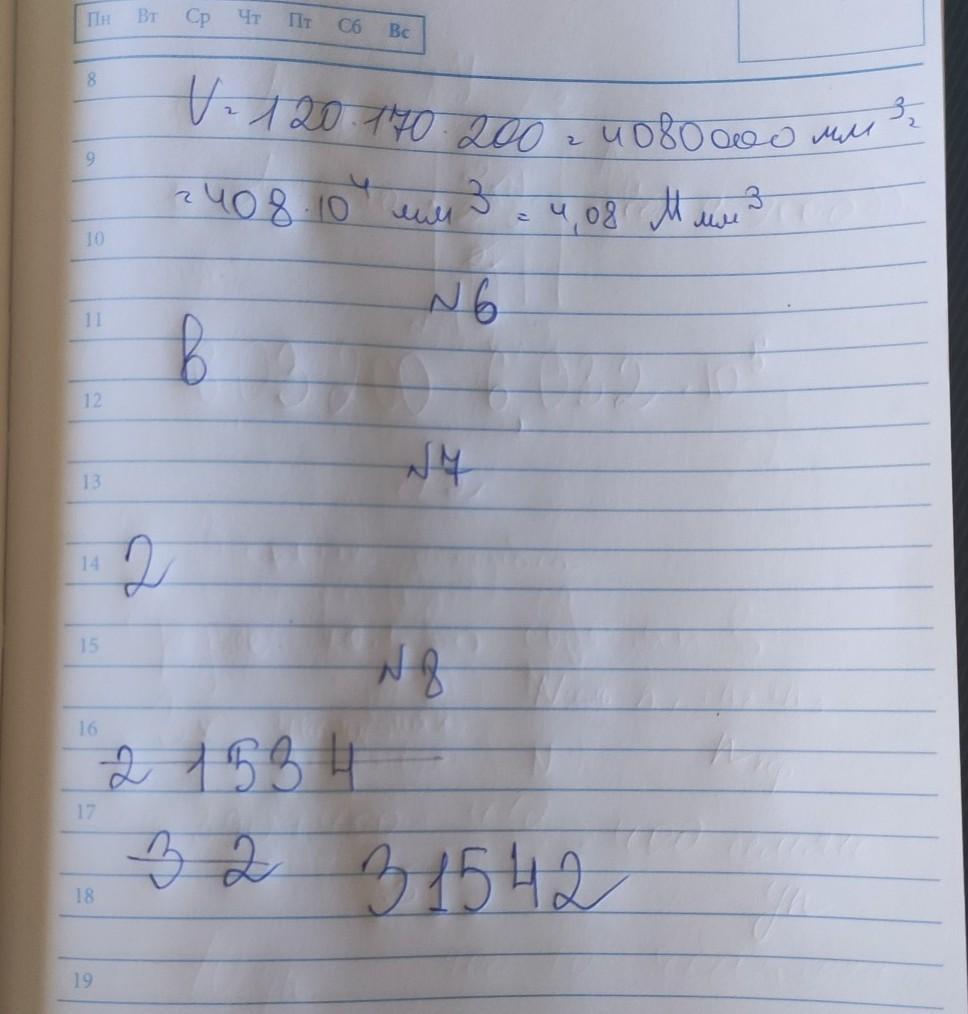 Пн Вт Ср Чт Пт Сб Вс
8
V=120·170·200=4080000 мм³=
9
=408·10⁴ мм³=4,08 М мм³
10
N6
11
В
12
N7
13
14 2
15
N8
16
2 1534
17
3 2 31542
18
19